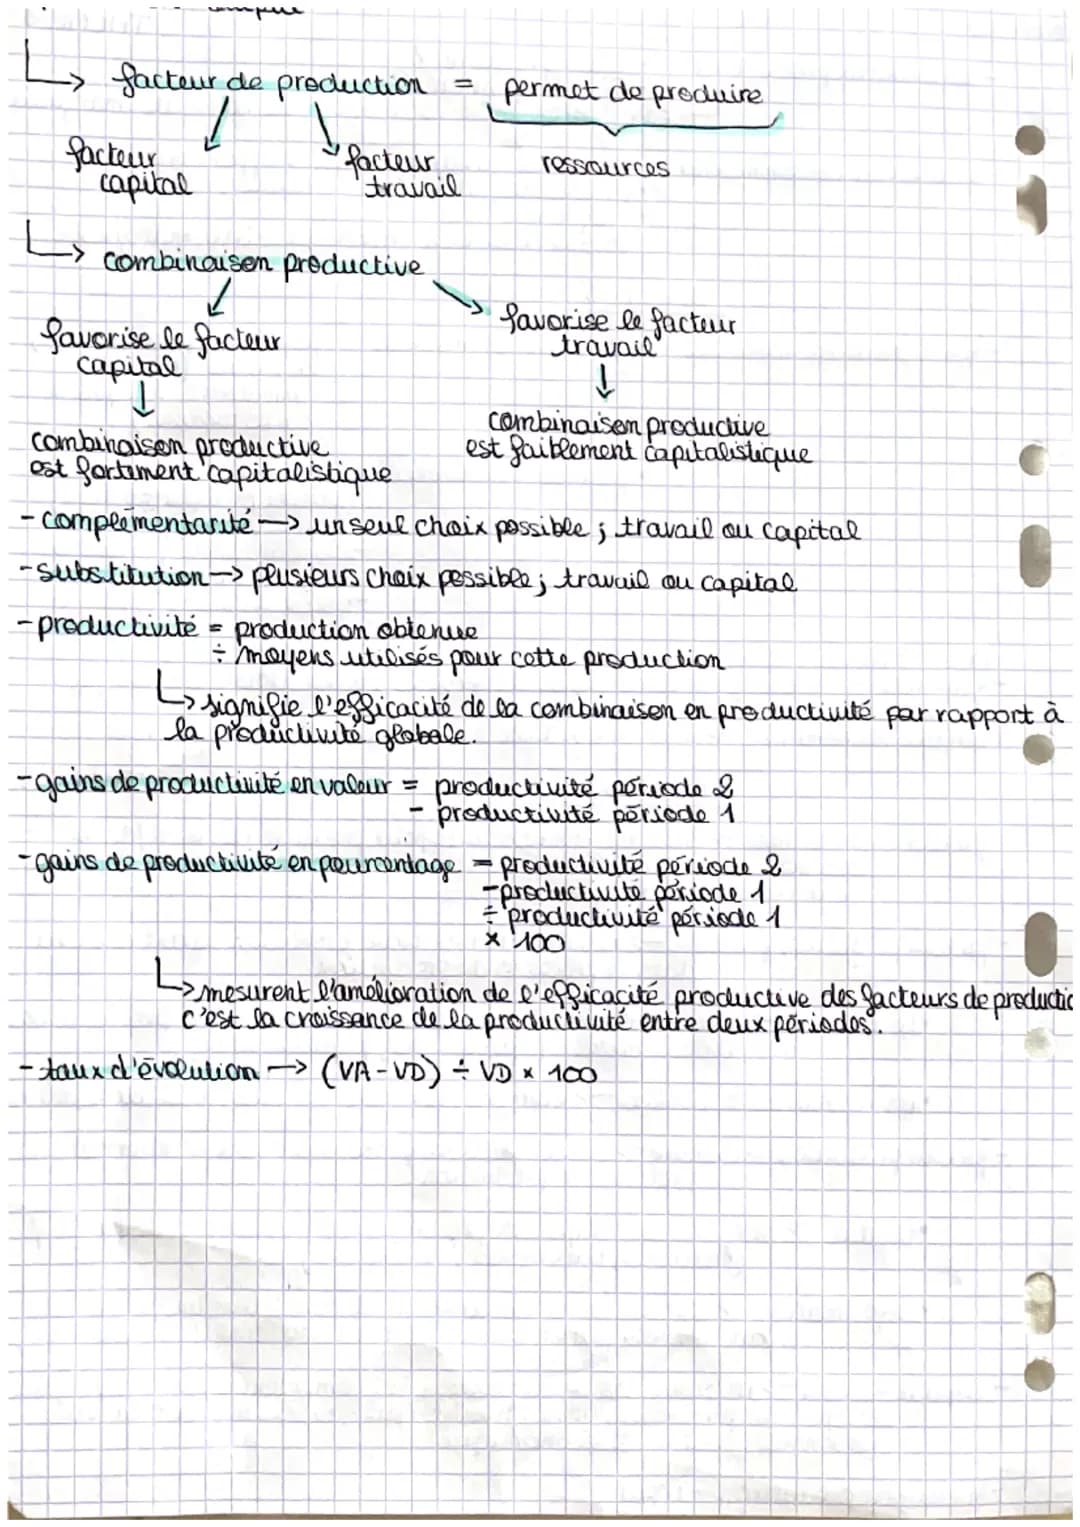 ↳ facteur de production = permet de produire
facteur capital
facteur travail
ressources
↳ combinaison productive
favorise le facteur capital
favorise le facteur travail
↓
↓
combinaison productive
est fortement capitalistique
combinaison productive
est faiblement capitalistique
- complémentarité → un seul choix possible ; travail ou capital
- substitution → plusieurs choix possible ; travail ou capital
- productivité = production obtenue
÷ moyens utilisés pour cette production
↳ signifie l'efficacité de la combinaison en productivité par rapport à
la productivité globale.
- gains de productivité en valeur = productivité période 2
- productivité période 1
- gains de productivité en pourcentage = productivité période 2
- productivité période 1
÷ productivité période 1
× 100
↳ mesurent l'amélioration de l'efficacité productive des facteurs de productio
c'est la croissance de la productivité entre deux périodes.
- taux d'évolution → (VA - VD) ÷ VD × 100